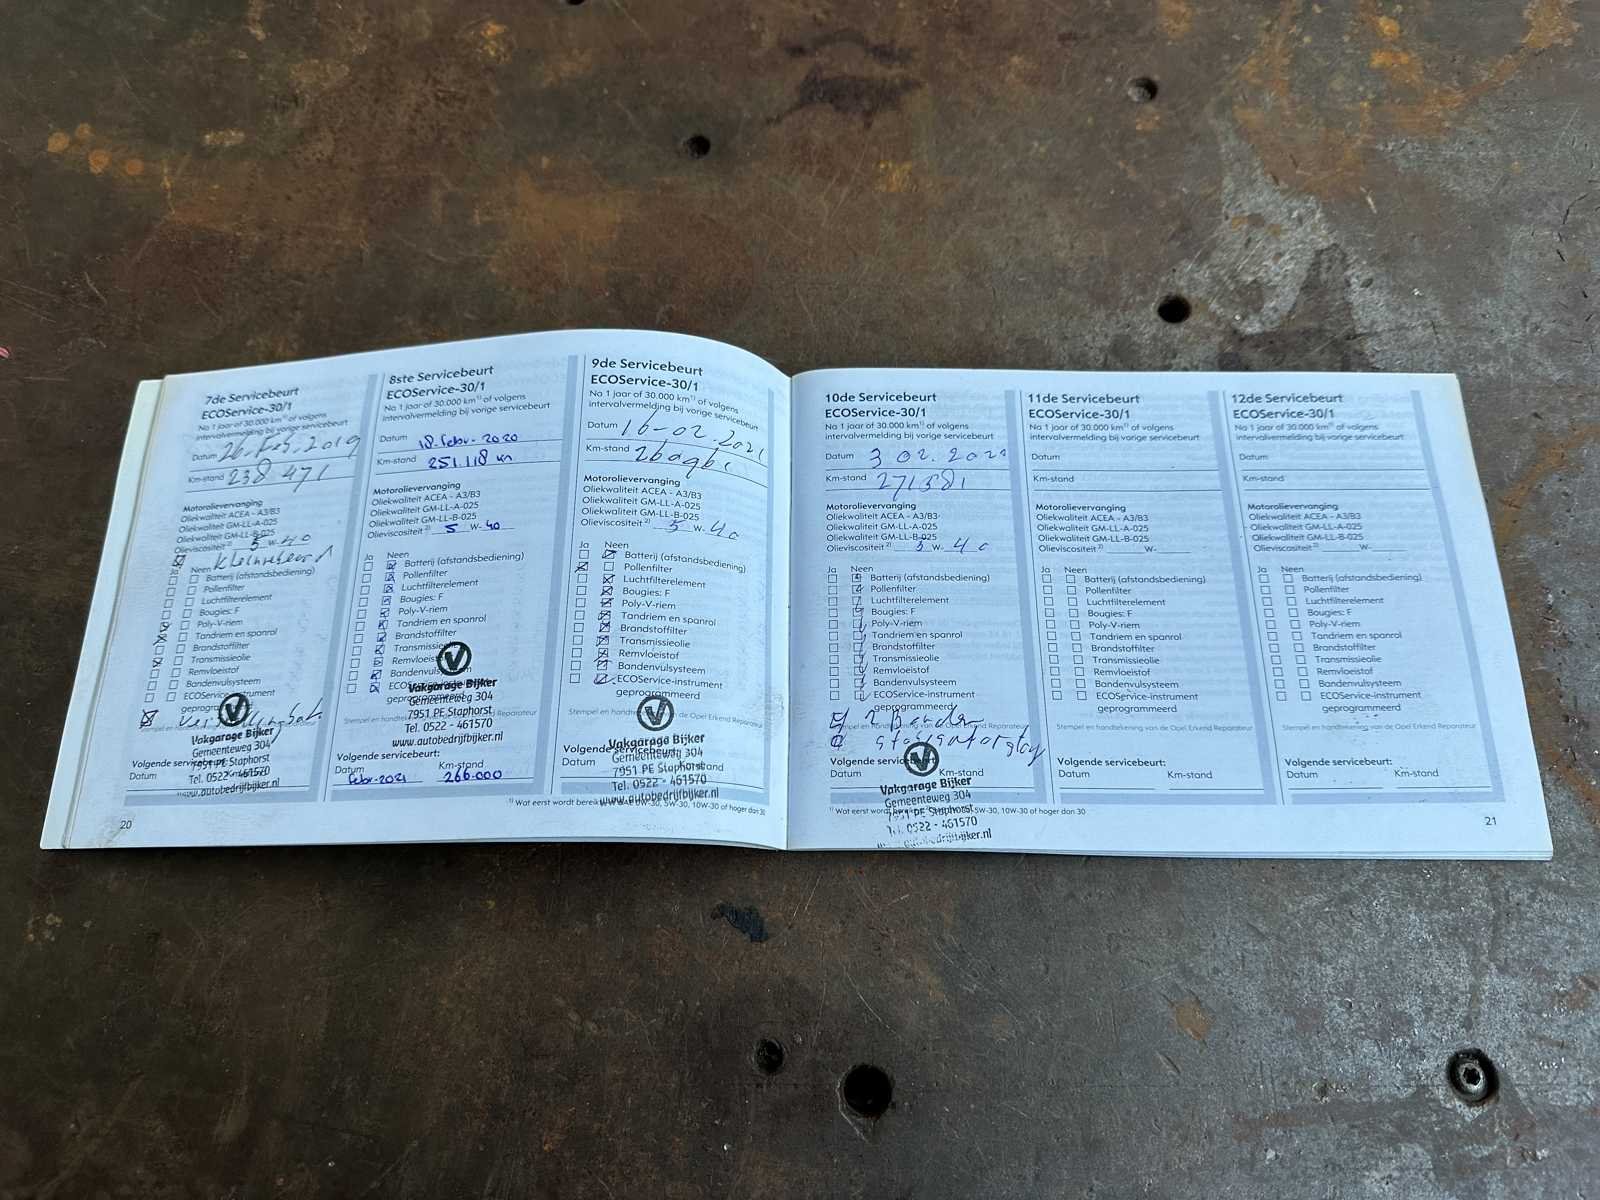 7de Servicebeurt
ECOService-30/1
Na 1 jaar of 30.000 km¹⁾ of volgens
intervalvermelding bij vorige servicebeurt
Datum 26. Feb. 2019
Km-stand 238 471
Motorolievervanging
Oliekwaliteit ACEA - A3/B3
Oliekwaliteit GM-LL-A-025
Oliekwaliteit GM-LL-B-025
Olieviscositeit ²⁾ 5 W- 40
Ja Neen
Batterij (afstandsbediening)
Pollenfilter
Luchtfilterelement
Bougies: F
Poly-V-riem
Tandriem en spanrol
Brandstoffilter
Transmissieolie
Remvloeistof
Bandenvulsysteem
ECOService-instrument
geprogrammeerd
Stempel en
Vakgarage Bijker
Gemeenteweg 304
7951 PE Staphorst
Tel. 0522 - 461570
www.autobedrijfbijker.nl
Volgende servicebeurt:
Datum Km-stand
20
8ste Servicebeurt
ECOService-30/1
Na 1 jaar of 30.000 km¹⁾ of volgens
intervalvermelding bij vorige servicebeurt
Datum 18. febr. 2020
Km-stand 251.118 km
Motorolievervanging
Oliekwaliteit ACEA - A3/B3
Oliekwaliteit GM-LL-A-025
Oliekwaliteit GM-LL-B-025
Olieviscositeit ²⁾ 5 W- 40
Ja Neen
Batterij (afstandsbediening)
Pollenfilter
Luchtfilterelement
Bougies: F
Poly-V-riem
Tandriem en spanrol
Brandstoffilter
Transmissieolie
Remvloeistof
Bandenvulsysteem
ECOService-instrument
geprogrammeerd
Stempel en handtekening van de Opel Erkend Reparateur
Vakgarage Bijker
Gemeenteweg 304
7951 PE Staphorst
Tel. 0522 - 461570
www.autobedrijfbijker.nl
Volgende servicebeurt:
Datum Km-stand
febr-2021 266.000
9de Servicebeurt
ECOService-30/1
Na 1 jaar of 30.000 km¹⁾ of volgens
intervalvermelding bij vorige servicebeurt
Datum 16-02-2021
Km-stand
Motorolievervanging
Oliekwaliteit ACEA - A3/B3
Oliekwaliteit GM-LL-A-025
Oliekwaliteit GM-LL-B-025
Olieviscositeit ²⁾ 5 W- 40
Ja Neen
Batterij (afstandsbediening)
Pollenfilter
Luchtfilterelement
Bougies: F
Poly-V-riem
Tandriem en spanrol
Brandstoffilter
Transmissieolie
Remvloeistof
Bandenvulsysteem
ECOService-instrument
geprogrammeerd
Stempel en handtekening van de Opel Erkend Reparateur
Vakgarage Bijker
Gemeenteweg 304
7951 PE Staphorst
Tel. 0522 - 461570
www.autobedrijfbijker.nl
Volgende servicebeurt:
Datum Km-stand
¹⁾ Wat eerst wordt bereikt 5W-30, 10W-30 of hoger dan 30
10de Servicebeurt
ECOService-30/1
Na 1 jaar of 30.000 km¹⁾ of volgens
intervalvermelding bij vorige servicebeurt
Datum 3 02.
Km-stand 271581
Motorolievervanging
Oliekwaliteit ACEA - A3/B3
Oliekwaliteit GM-LL-A-025
Oliekwaliteit GM-LL-B-025
Olieviscositeit ²⁾ 5 W- 40
Ja Neen
Batterij (afstandsbediening)
Pollenfilter
Luchtfilterelement
Bougies: F
Poly-V-riem
Tandriem en spanrol
Brandstoffilter
Transmissieolie
Remvloeistof
Bandenvulsysteem
ECOService-instrument
geprogrammeerd
2 Banden
Stempel en handtekening van de Opel Erkend Reparateur
Volgende servicebeurt:
Datum Km-stand
Vakgarage Bijker
Gemeenteweg 304
7951 PE Staphorst
Tel. 0522 - 461570
autobedrijfbijker.nl
¹⁾ Wat eerst wordt bereikt 5W-30, 10W-30 of hoger dan 30
11de Servicebeurt
ECOService-30/1
Na 1 jaar of 30.000 km¹⁾ of volgens
intervalvermelding bij vorige servicebeurt
Datum
Km-stand
Motorolievervanging
Oliekwaliteit ACEA - A3/B3
Oliekwaliteit GM-LL-A-025
Oliekwaliteit GM-LL-B-025
Olieviscositeit ²⁾ W-
Ja Neen
Batterij (afstandsbediening)
Pollenfilter
Luchtfilterelement
Bougies: F
Poly-V-riem
Tandriem en spanrol
Brandstoffilter
Transmissieolie
Remvloeistof
Bandenvulsysteem
ECOService-instrument
geprogrammeerd
Stempel en handtekening van de Opel Erkend Reparateur
Volgende servicebeurt:
Datum Km-stand
12de Servicebeurt
ECOService-30/1
Na 1 jaar of 30.000 km¹⁾ of volgens
intervalvermelding bij vorige servicebeurt
Datum
Km-stand
Motorolievervanging
Oliekwaliteit ACEA - A3/B3
Oliekwaliteit GM-LL-A-025
Oliekwaliteit GM-LL-B-025
Olieviscositeit ²⁾ W-
Ja Neen
Batterij (afstandsbediening)
Pollenfilter
Luchtfilterelement
Bougies: F
Poly-V-riem
Tandriem en spanrol
Brandstoffilter
Transmissieolie
Remvloeistof
Bandenvulsysteem
ECOService-instrument
geprogrammeerd
Stempel en handtekening van de Opel Erkend Reparateur
Volgende servicebeurt:
Datum Km-stand
21